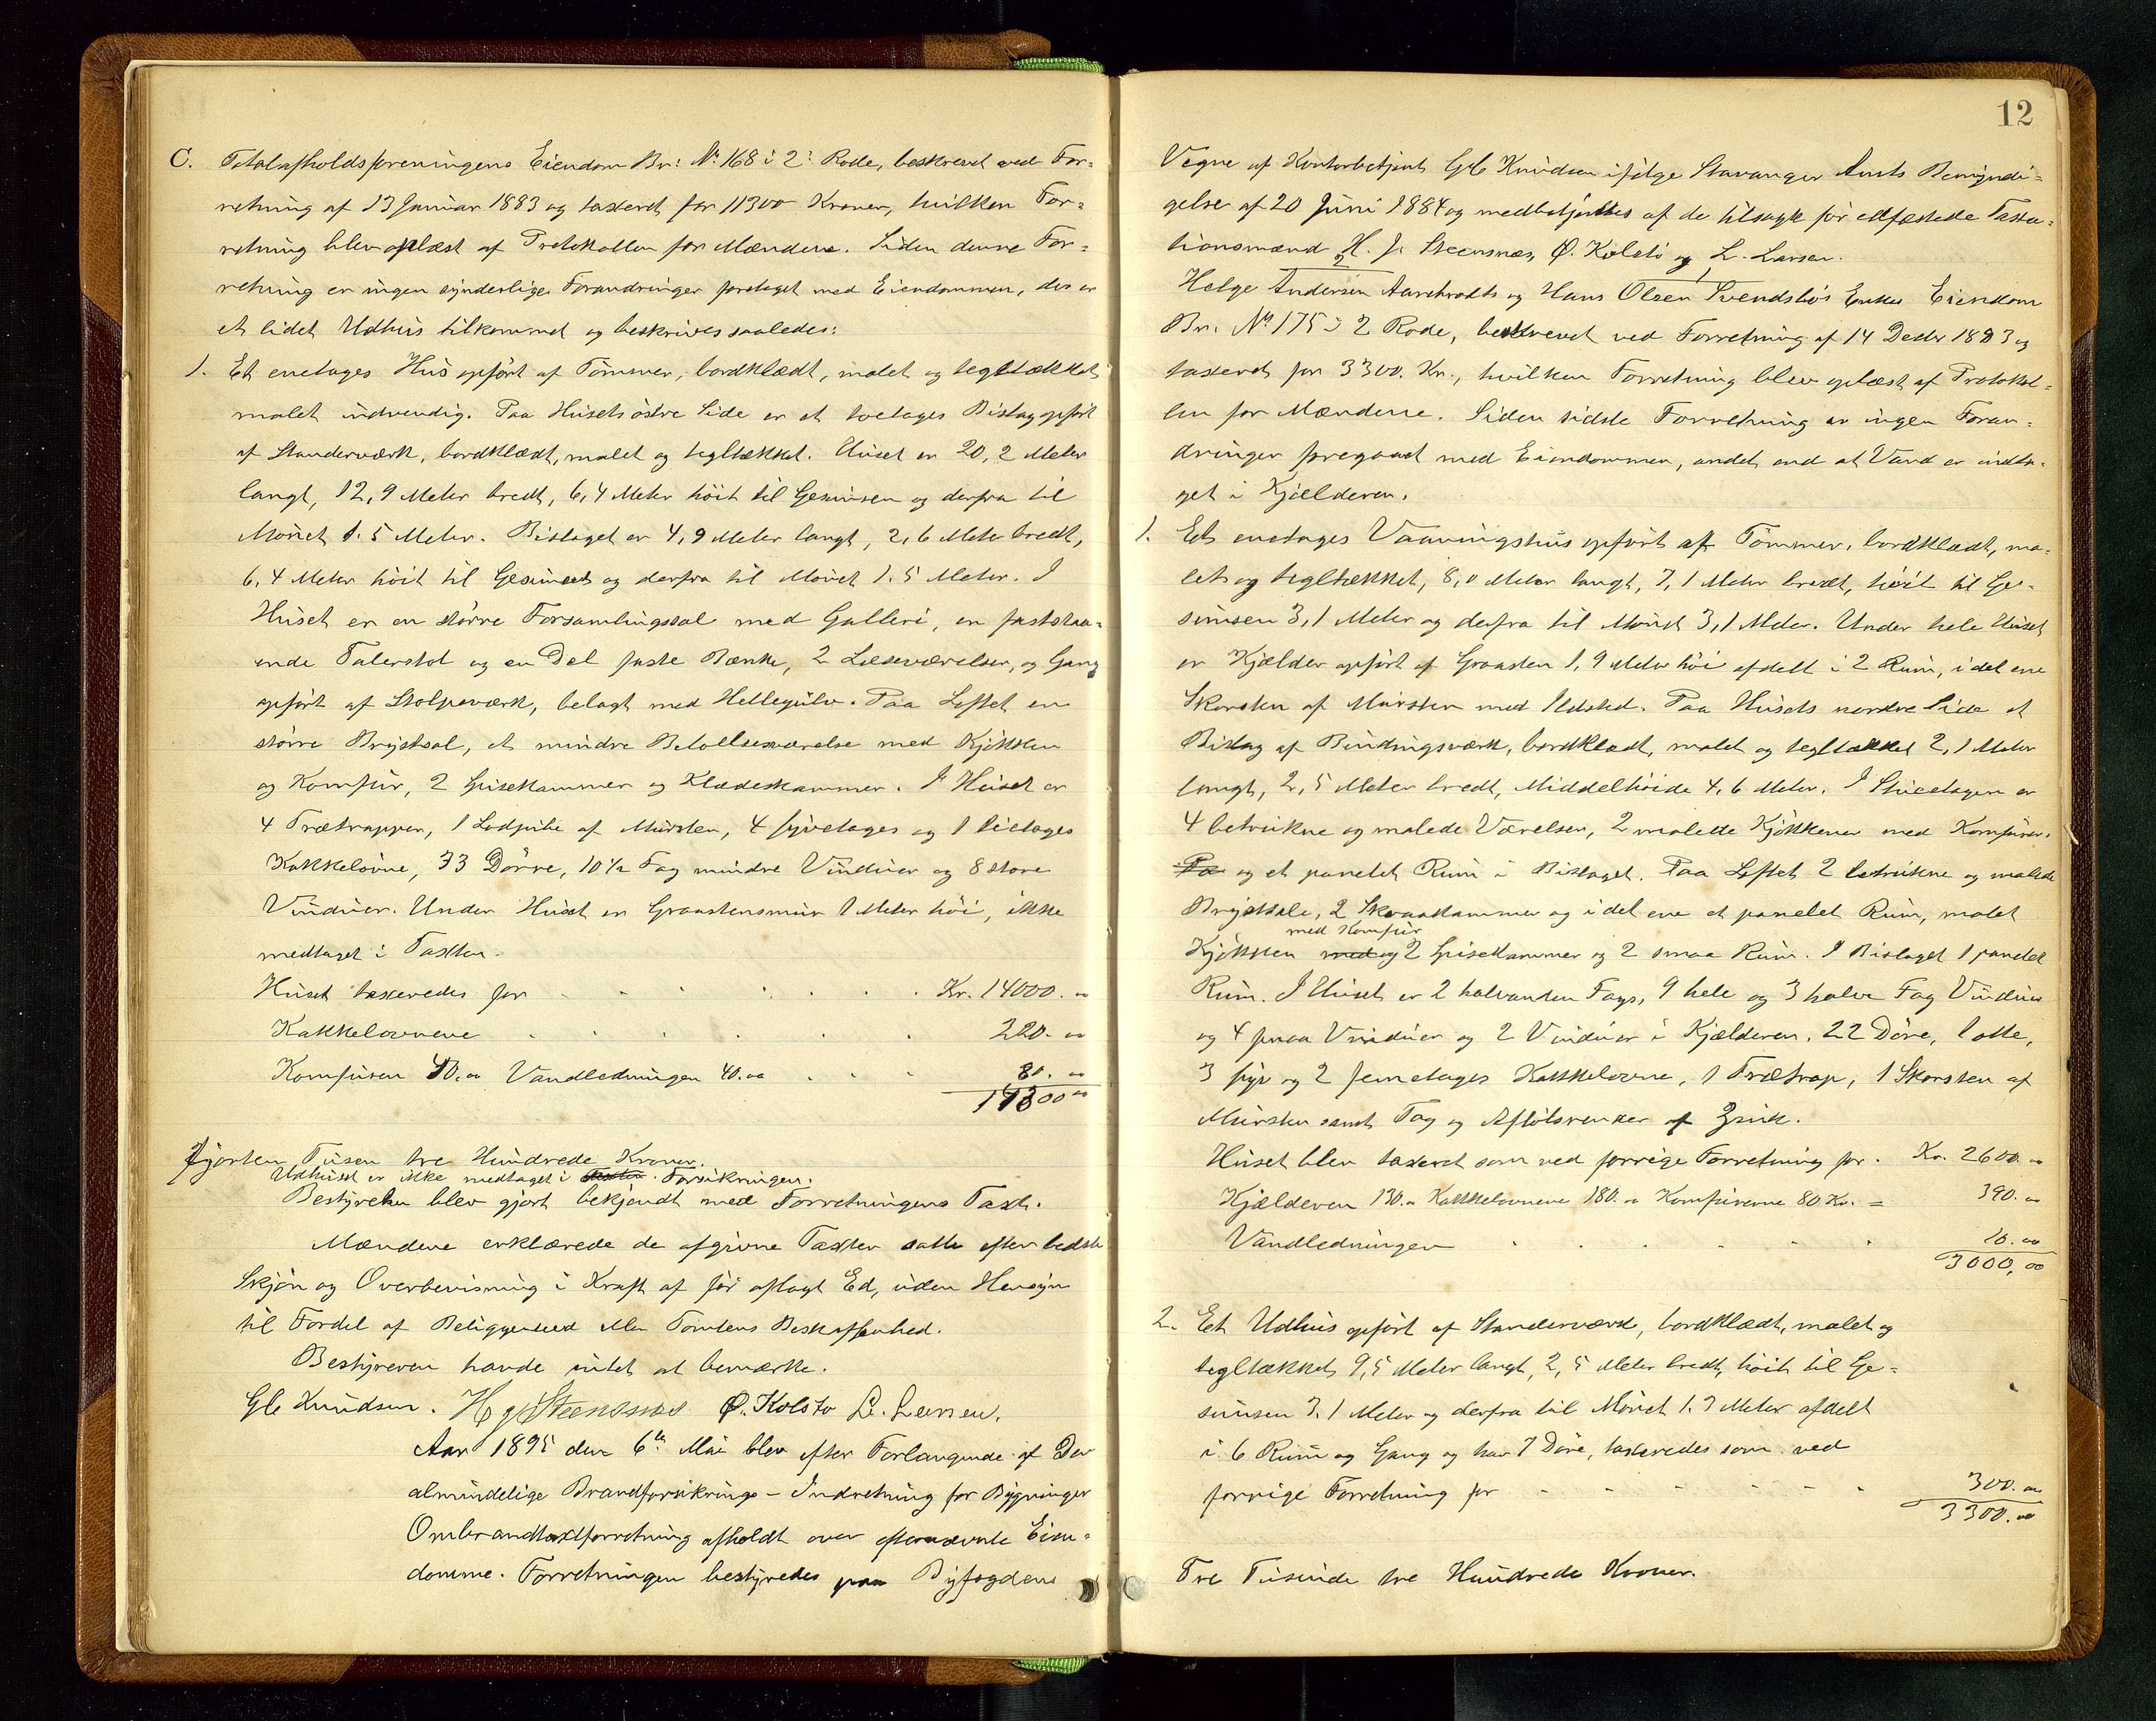 C. Totalafholdsforeningens Eiendom Br: No 168 i 2: Rode, beskrevet ved For=
retning af 13 Januar 1883 og taxeret for 11300 Kroner, hvilken For=
retning blev oplæst af Protokollen for Mændene. Siden denne For=
retning er ingen synderlige Forandringer foretaget med Eiendommen, der er
et lidet Udhus tilkommet og beskrives saaledes:
1. Et enetages Hus opført af Tømmer, bordklædt, malet og tegltækket
malet indvendig. Paa Husets østre Side er et toetages Bislag opført
af Standerværk, bordklædt, malet og tegltækket. Huset er 20,2 Meter
langt, 12,9 Meter bredt, 6,4 Meter høit til Gesimsen og derfra til
Mønet 1.5 Meter. Bislaget er 4,9 Meter langt, 2,6 Meter bredt,
6,4 Meter høit til Gesimset og derfra til Mønet 1.5 Meter. I
Huset er en større Forsamlingssal med Galleri, en faststaa=
ende Talerstol og en Del faste Bænke, 2 Læseværelser, og Gang
opført af Stolpeværk, belagt med Hellegulv. Paa Loftet en
større Brystsal, et mindre Beværelse med Kjøkken
og Komfur, 2 Spisekammer og Klædeskammer. I Huset er
4 Trætrapper, 1 Lodpibe af Mursten, 4 fyretages og 1 tietages
Kakkelovne, 33 Dørre, 10 1/2 Fag mindre Vinduer og 8 store
Vinduer. Under Huset er Graastensmur 1 Meter høi, ikke
medtaget i Taxten.
Huset taxeredes for Kr. 14000. 00
Kakkelovnene 220. 00
Komfuren 40.00 Vandledningen 40.00 80. 00
14300 00
Fjorten Tusen tre Hundrede Kroner.
Udhuset er ikke medtaget i Forsikringen.
Bestyrelsen blev gjort bekjendt med Forretningens Taxt.
Mændene erklærede de afgivne Taxter satte efter bedste
Skjøn og Overbevisning i Kraft af før aflagt Ed, uden Hensyn
til Fordel af Beliggenhed eller Tomtens Beskaffenhed.
Bestyreren havde intet at bemærke.
Gb Knudsen. H J Steensnæs Ø. Kolstø L. Larsen.
Aar 1895 den 6te Mai blev efter Forlangende af Den
almindelige Brandforsikrings-Indretning for Bygninger
Ombrandtaxtforretning afholdt over efternævnte Eien=
domme. Forretningen bestyredes paa Byfogdens
12
Vegne af Kontorbetjent Gb Knudsen ifølge Stavanger Amts Bemyndi=
gelse af 20 Juni 1884 og medbetjentes af de tilsagte før edfæstede Taxa=
tionsmænd H. J. Steensnæs, Ø. Kolstø og L. Larsen.
2 1
Helge Andersen Aarebrodts og Hans Olsen Svendsbøs Enkes Eiendom
Br. No 175 i 2 Rode, beskrevet ved Forretning af 14 Decbr 1883 og
taxeret for 3300. Kr., hvilken Forretning blev oplæst af Protokol=
len for Mændene. Siden sidste Forretning er ingen Foran=
dringer foregaaet med Eiendommen, andet end at Vand er indta=
get i Kjælderen.
1. Et enetages Vaaningshus opført af Tømmer, bordklædt, ma=
let og tegltækket, 8,0 Meter langt, 7,1 Meter bredt, høit til Ge=
simsen 3,1 Meter og derfra til Mønet 3,1 Meter. Under hele Huset
er Kjælder opført af Graasten 1,9 Meter høi afdelt i 2 Rum, i det ene
Skorsten af Mursten med Ildsted. Paa Husets nordre Side et
Bislag af Bindingsværk, bordklædt, malet og tegltækket 2,1 Meter
langt, 2,5 Meter bredt, Middelhøide 4,6 Meter. I Stueetagen er
4 betrukne og malede Værelser, 2 malede Kjøkkener med Komfurer.
Pa og et panelet Rum i Bislaget. Paa Loftet 2 betrukne og malede
Brystsale, 2 Skraakammer og i det ene et panelet Rum, malet
med Komfur
Kjøkken med og 2 Spisekammer og 2 smaa Rum. I Bislaget 1 panelet
Rum. I Huset er 2 halvanden Fags, 9 hele og 3 halve Fag Vinduer
og 4 smaa Vinduer og 2 Vinduer i Kjælderen. 22 Døre, 1 otte,
3 fyr og 2 femetages Kakkelovne, 1 Trætrap, 1 Skorsten af
Mursten samt Tag og Afløbsrender af Zink.
Huset blev taxeret som ved forrige Forretning for. Kr. 2600. 00
Kjælderen 130. 00 Kakkelovnene 180. 00 Komfurerne 80 Kr. = 390. 00
Vandledningen 10. 00
3000, 00
2. Et Udhus opført af Standerværk, bordklædt, malet og
tegltækket 9,5 Meter langt, 2,5 Meter bredt, høit til Ge=
simsen 3.1 Meter og derfra til Mønet 1.3 Meter afdelt
i 6 Rum og Gang og har 7 Døre, taxeredes som ved
forrige Forretning for 300. 00
3300. 00
Tre Tusinde tre Hundrede Kroner.